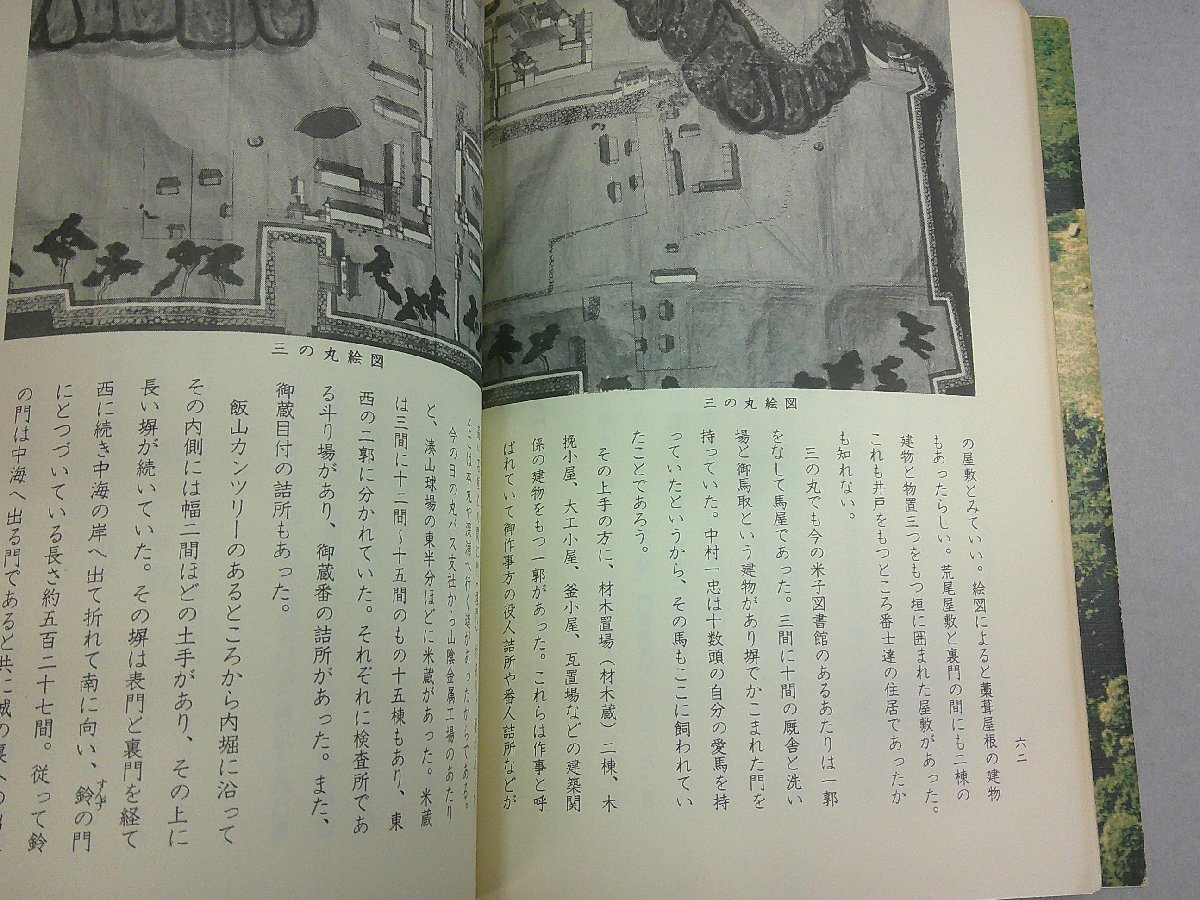 三の丸絵図
六二
の屋敷とみていい。絵図によると藁葺屋根の建物
もあったらしい。荒尾屋敷と裏門の間にも二棟の
建物と物置三つをもつ垣に囲まれた屋敷があった。
これも井戸をもつところ番士達の住居であったか
も知れない。
三の丸でも今の米子図書館のあるあたりは一郭
をなして馬屋であった。三間に十間の厩舎と洗い
場と御馬取という建物があり塀でかこまれた門を
持っていた。中村一忠は十数頭の自分の愛馬を持
っていたというから、その馬もここに飼われてい
たことであろう。
その上手の方に、材木置場(材木蔵)二棟、木
挽小屋、大工小屋、釜小屋、瓦置場などの建築関
係の建物をもつ一郭があった。これらは作事と呼
ばれていて御作事方の役人詰所や番人詰所などが
三の丸絵図
今の日の丸バス支社から山陰金属工場のあたり
と、湊山球場の東半分ほどに米蔵があった。米蔵
は三間に十二間~十五間のもの十五棟もあり、東
西の二郭に分かれていた。それぞれに検査所であ
る斗り場があり、御蔵番の詰所があった。また、
御蔵目付の詰所もあった。
飯山カンツリーのあるところから内堀に沿って
その内側には幅二間ほどの土手があり、その上に
長い塀が続いていた。その塀は表門と裏門を経て
西に続き中海の岸へ出て折れて南に向い、鈴の門
すず
にとつづいている長さ約五百二十七間。従って鈴
の門は中海へ出る門であると共に城の裏への